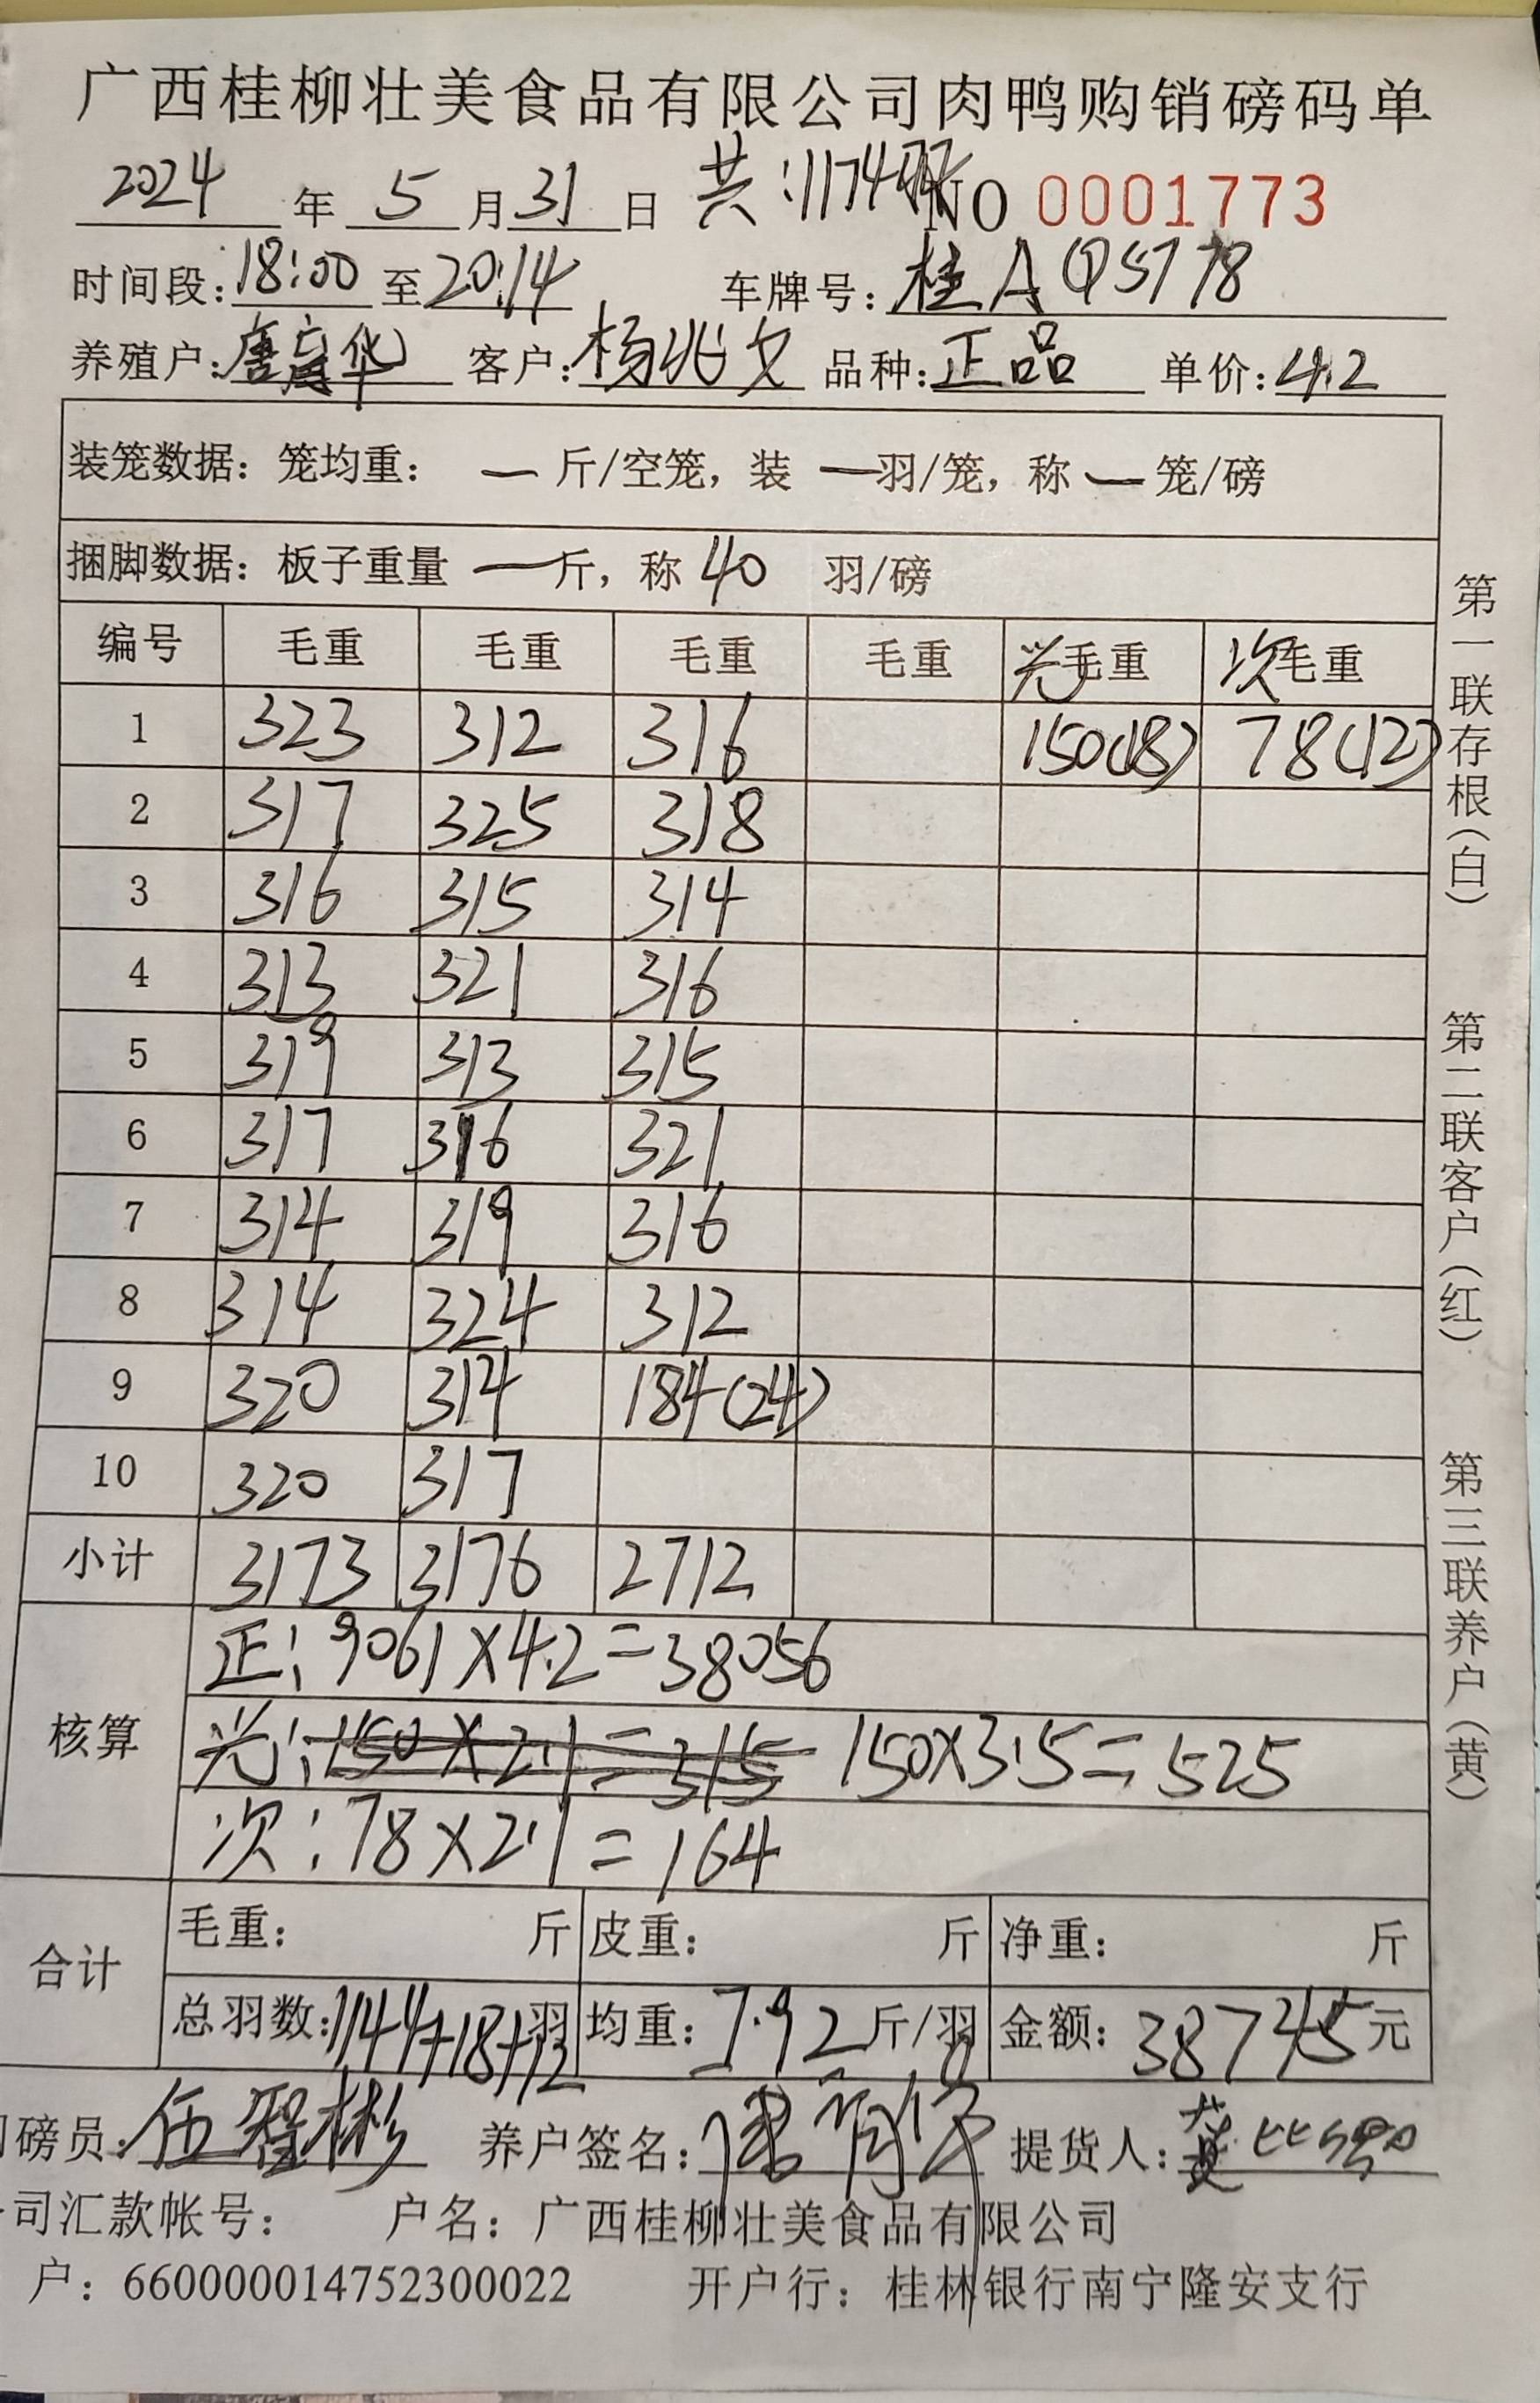 广西桂柳壮美食品有限公司肉鸭购销磅码单
2024 年 5 月 31 日 共:1174羽 NO 0001773
时间段: 18:00 至 20:14 车牌号: 桂A
养殖户: 唐 华 客户: 杨兆文 品种: 正品 单价: 4.2
装笼数据: 笼均重: — 斤/空笼, 装 — 羽/笼, 称 — 笼/磅
捆脚数据: 板子重量 — 斤, 称 40 羽/磅
编号 毛重 毛重 毛重 毛重 光毛重 次毛重
1 323 312 316 150(18) 78(12)
2 317 325 318
3 316 315 314
4 313 321 316
5 319 313 315
6 317 316 321
7 314 319 316
8 314 324 312
9 320 314 184(24)
10 320 317
小计 3173 3176 2712
核算
正: 9061×4.2=38056
光: 150×2.1=315 150×3.5=525
次: 78×2.1=164
合计
毛重: 斤 皮重: 斤 净重: 斤
总羽数: 1144+18+12 羽 均重: 7.92 斤/羽 金额: 38745 元
司磅员: 伍 彬 养户签名: 提货人:
司汇款帐号: 户名: 广西桂柳壮美食品有限公司
户: 660000014752300022 开户行: 桂林银行南宁隆安支行
第一联存根(白)
第二联客户(红)
第三联养户(黄)